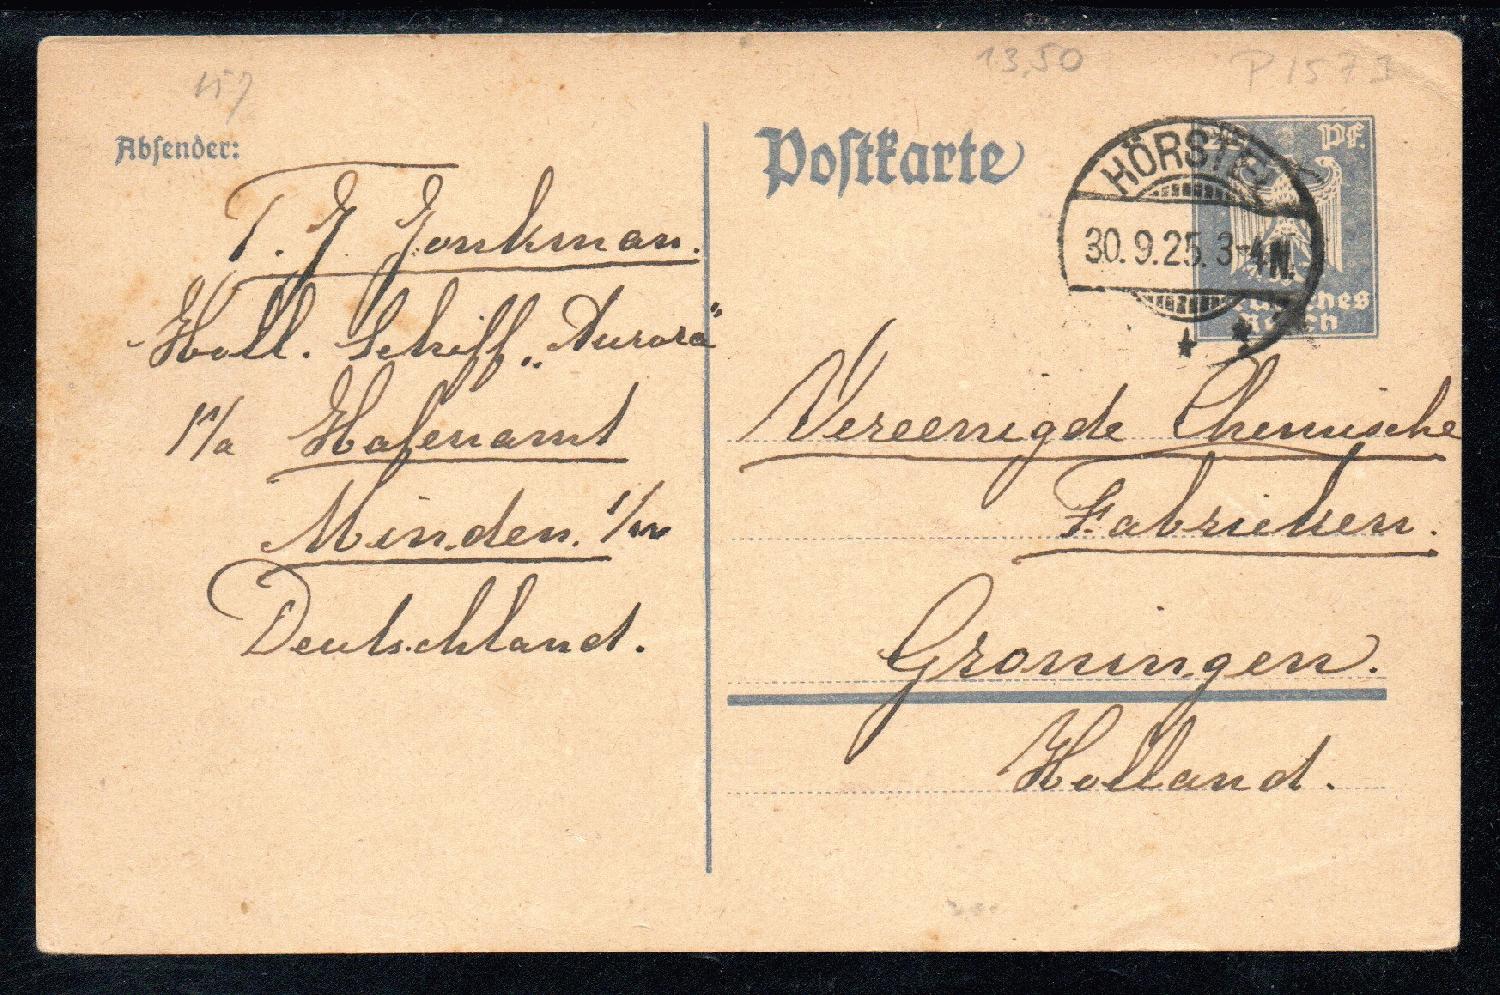 13,50
P 157 I
Absender:
T. J. Jonkman.
Holl. Schiff „Aurora"
p/a Hafenamt
Minden. i/w
Deutschland.
Postkarte
Pf.
HÖRSTEL
30.9.25. 3-4N.
Deutsches
Reich
Vereenigde Chemische
Fabrieken.
Groningen.
Holland.